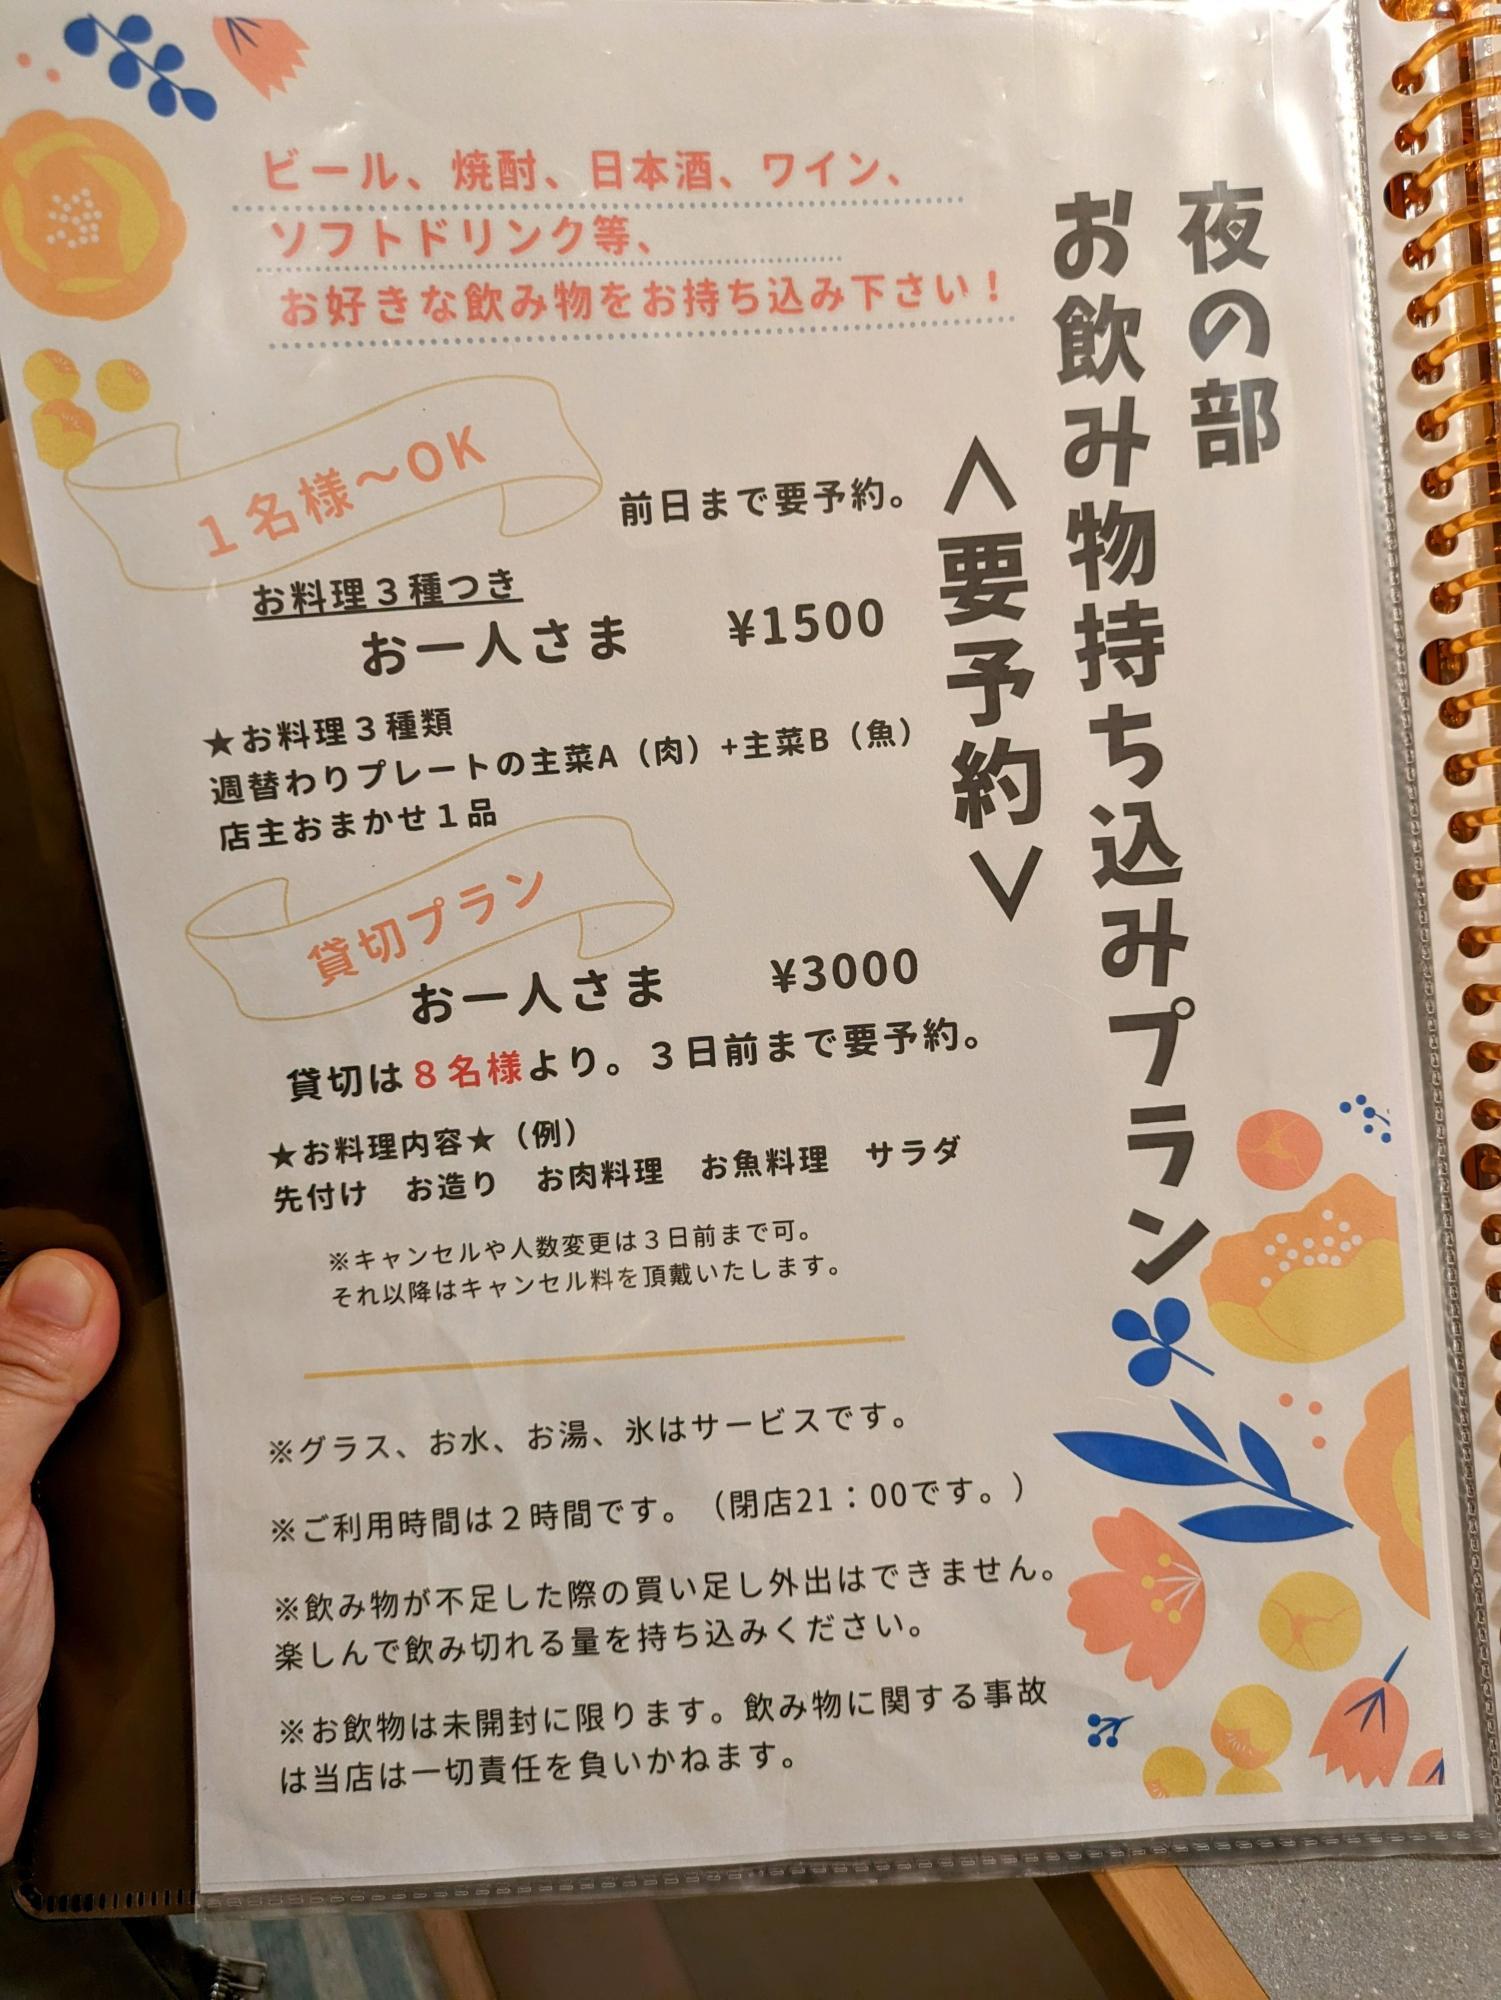 夜の部
お飲み物持ち込みプラン
<要予約>
ビール、焼酎、日本酒、ワイン、
ソフトドリンク等、
お好きな飲み物をお持ち込み下さい！
１名様～OK
前日まで要予約。
お料理３種つき
お一人さま ¥1500
★お料理３種類
週替わりプレートの主菜A（肉）+主菜B（魚）
店主おまかせ１品
貸切プラン
お一人さま ¥3000
貸切は８名様より。３日前まで要予約。
★お料理内容★（例）
先付け　お造り　お肉料理　お魚料理　サラダ
※キャンセルや人数変更は３日前まで可。
それ以降はキャンセル料を頂戴いたします。
※グラス、お水、お湯、氷はサービスです。
※ご利用時間は２時間です。（閉店21：00です。）
※飲み物が不足した際の買い足し外出はできません。
楽しんで飲み切れる量を持ち込みください。
※お飲物は未開封に限ります。飲み物に関する事故
は当店は一切責任を負いかねます。